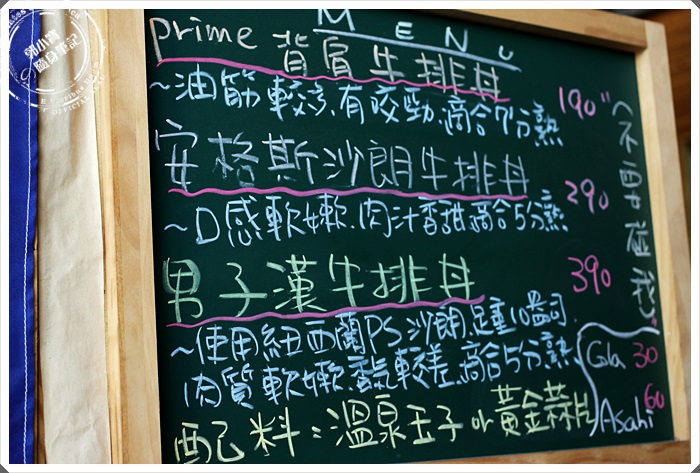 MENU
prime 背肩牛排丼 190
~油筋較多,有咬勁,適合7分熟
安格斯沙朗牛排丼 290
~口感軟嫩.肉汁香甜.適合5分熟
男子漢牛排丼 390
~使用紐西蘭PS沙朗.足重10盎司.
肉質軟嫩.香氣較差.適合5分熟.
配料:溫泉玉子 or 黃金蒜片
Cola 30
Asahi 60